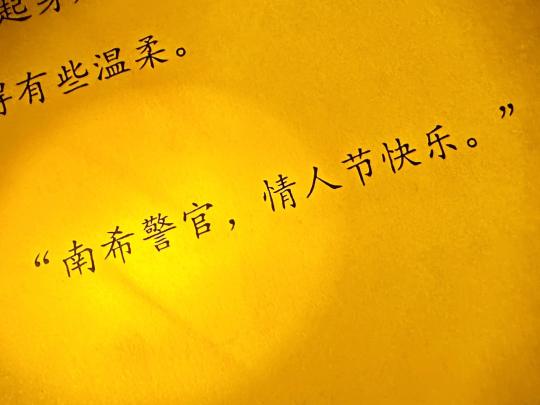 起身
得有些温柔。
“南希警官，情人节快乐。”